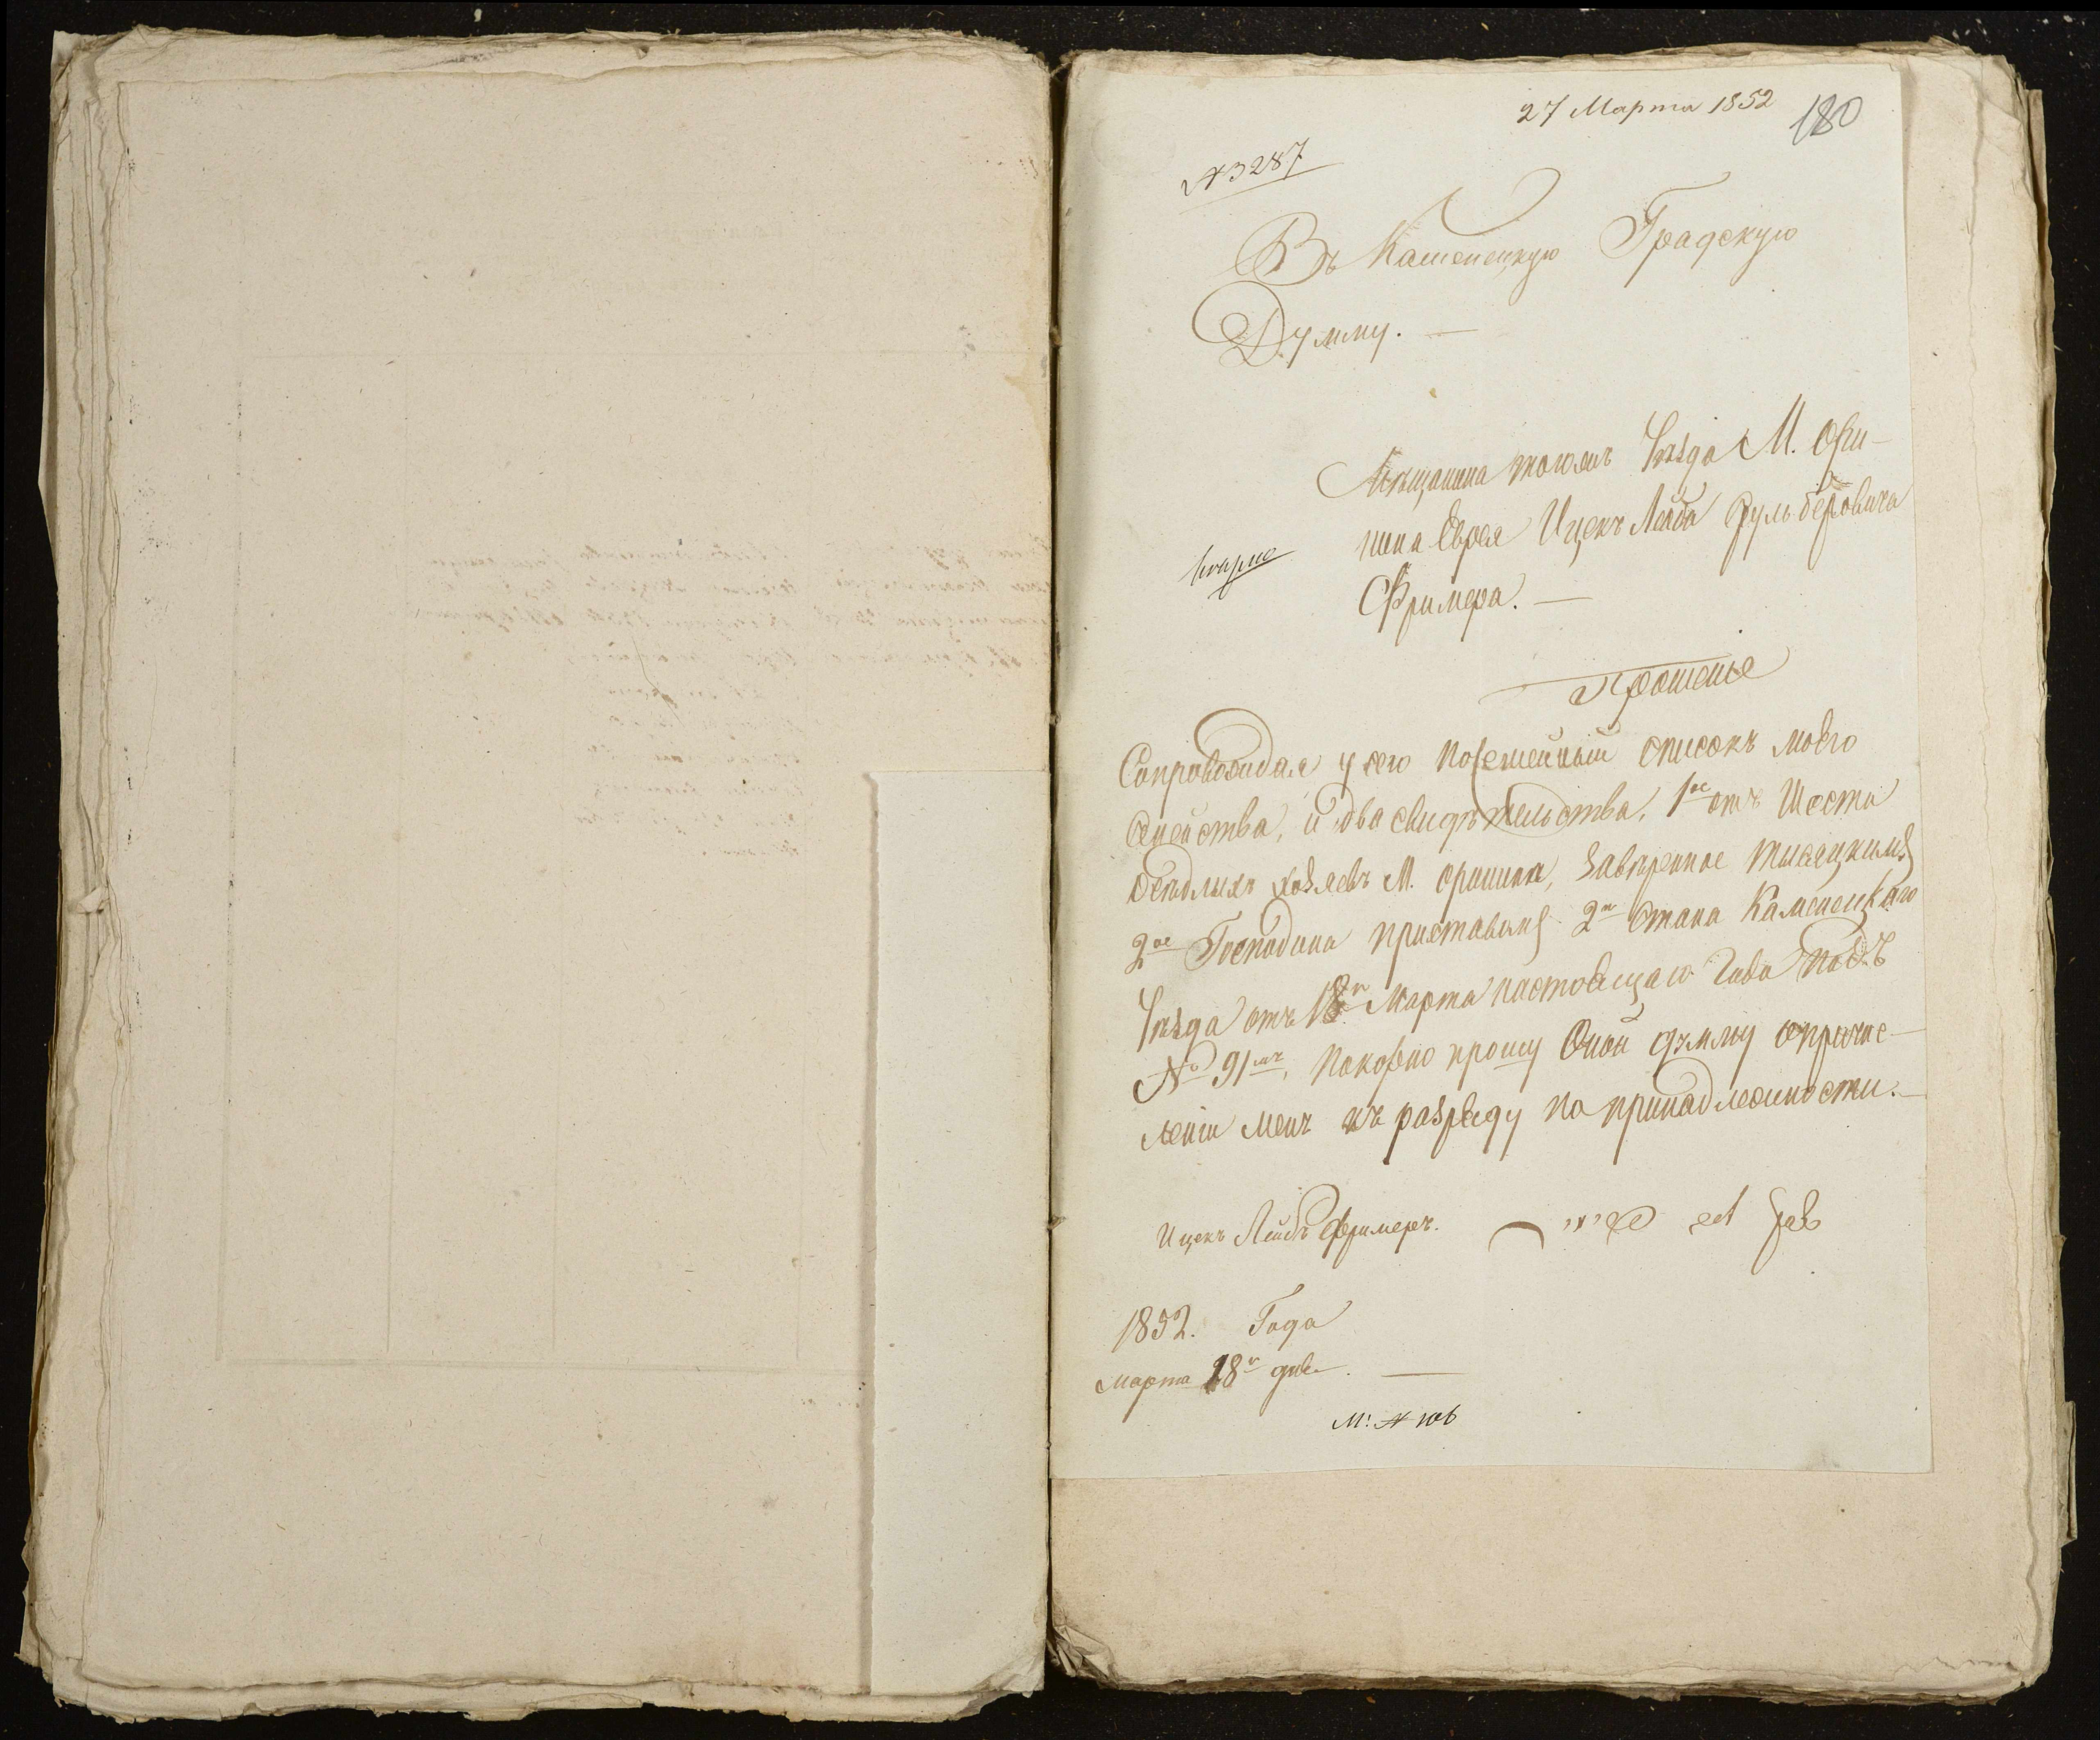 27 Марта 1852
180
№ 3287
Въ Каменецкую Градскую
Думму. —
Мѣщанина тогожъ Уѣзда М. Ори-
нина Еврея Ицекъ Лейба Сруль беровича
Фримера. —
Прошеніе
Сопровождая у сего посемейный списокъ моего
Семейства, и два свидѣтельства, 1ое отъ Шести
осѣдлыхъ хозяевъ М. оринина, завѣренное тысяцкимъ
2ое Господина приставомъ 2го Стана Каменецкаго
Уѣзда отъ 18го Марта настоящаго Года подъ
№ 91мъ, Покорно прошу Оной думму опричис-
леніи менѣ къ разряду по принадлежности. —
Ицекъ Лейбъ Фримеръ.
1852. Года
Марта 28го дня. —
М: № 106